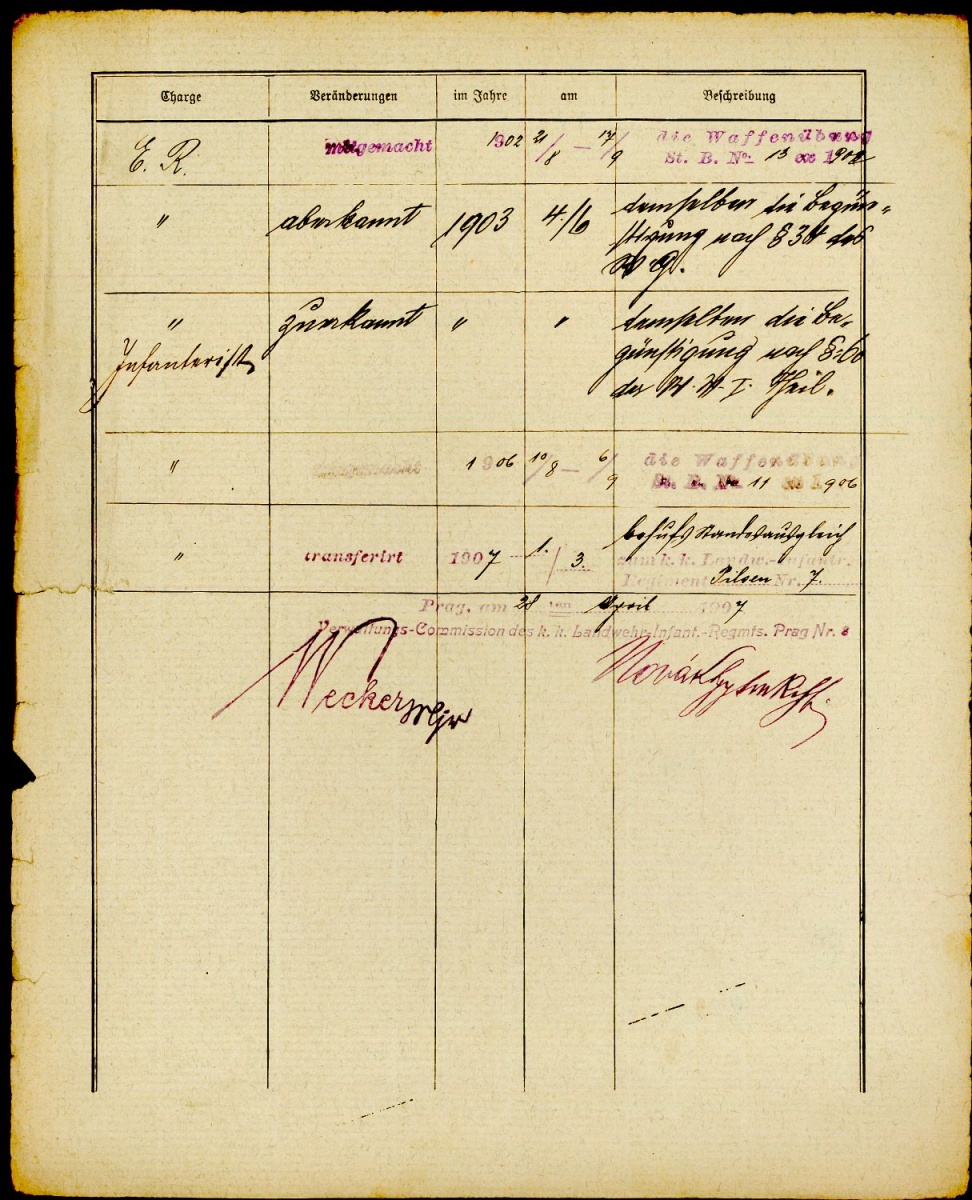 Charge Veränderungen im Jahre am Beschreibung
E. R. mitgemacht 1902 21/8 — 17/9 die Waffenübung
St. B. No 13 ex 1902
" aberkannt 1903 4./6 demselben die Begün-
stigung nach § 34 des
W. G.
" zuerkannt " " demselben die Be-
Infanterist günstigung nach §: 60
der W. V. I. Theil.
" 1906 10/8 — 6/9 die Waffenübung
St. B. No 11 ex 1906
" transferirt 1907 1./3. behufs Standesausgleich
zum k. k. Landw.-Infantr.
Regiment Pilsen Nr. 7.
Prag, am 28 ten April 1907
Verwaltungs-Commission des k. k. Landwehr-Infant.-Regmts. Prag Nr. 8
Wecker Mjr Novák